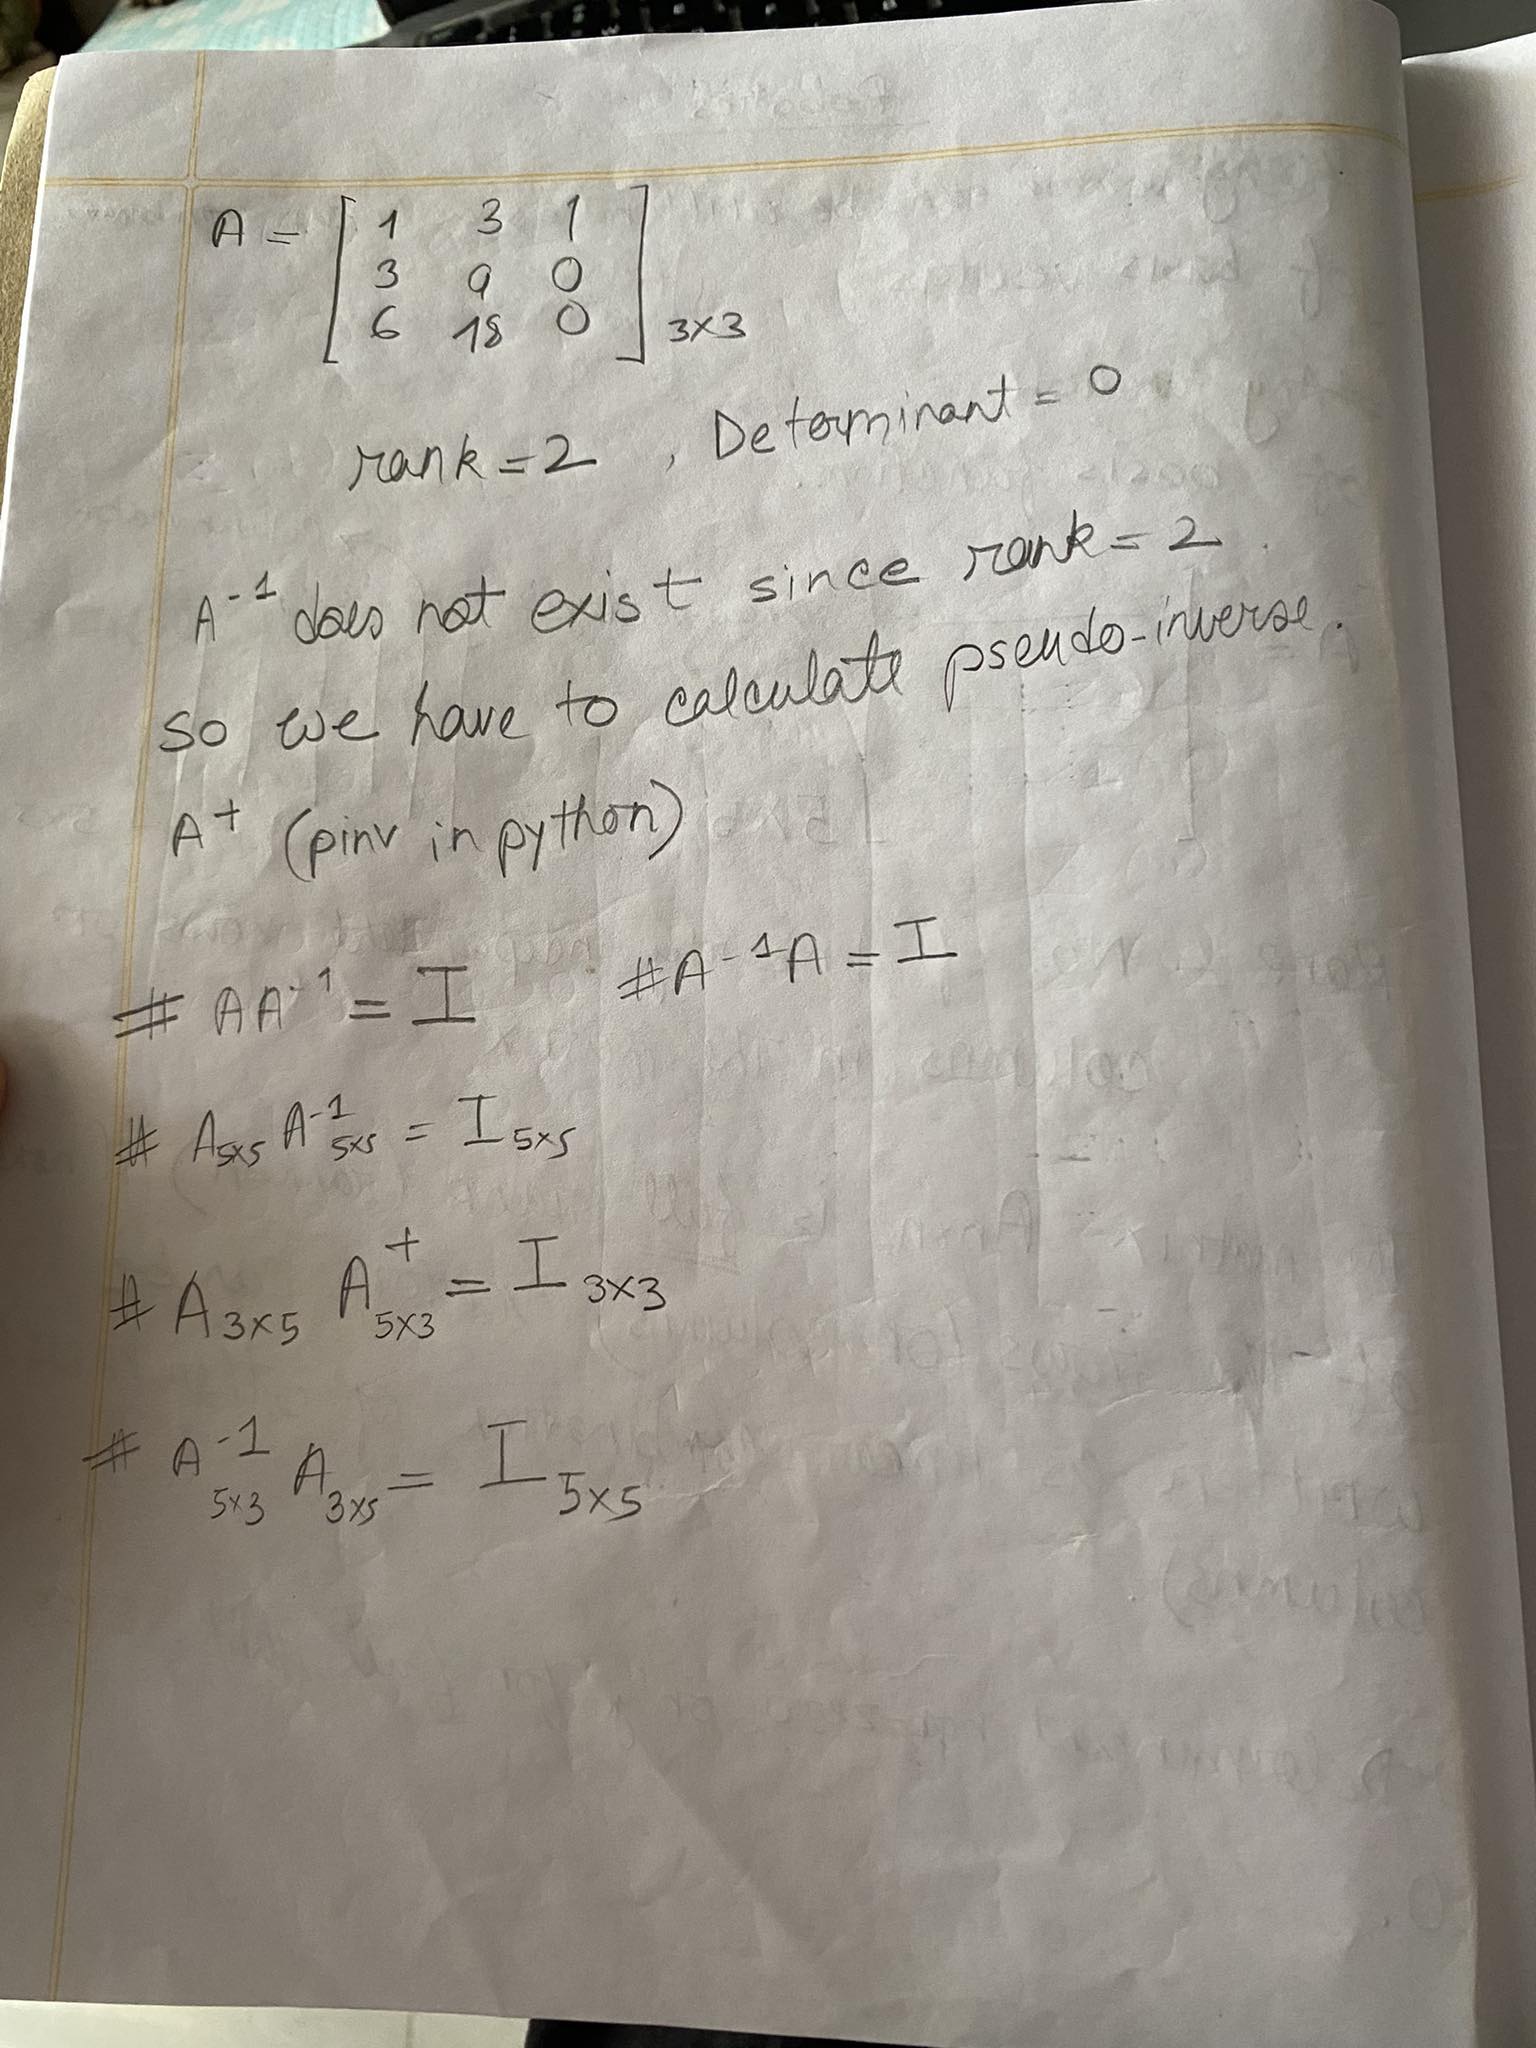 A = [ 1 3 1
3 9 0
6 18 0 ] 3×3
rank = 2 , Determinant = 0
A⁻¹ does not exist since rank = 2.
so we have to calculate pseudo-inverse.
A⁺ (pinv in python)
# AA⁻¹ = I # A⁻¹A = I
# A5×5 A⁻¹5×5 = I5×5
# A3×5 A⁺5×3 = I3×3
# A⁻¹5×3 A3×5 = I5×5